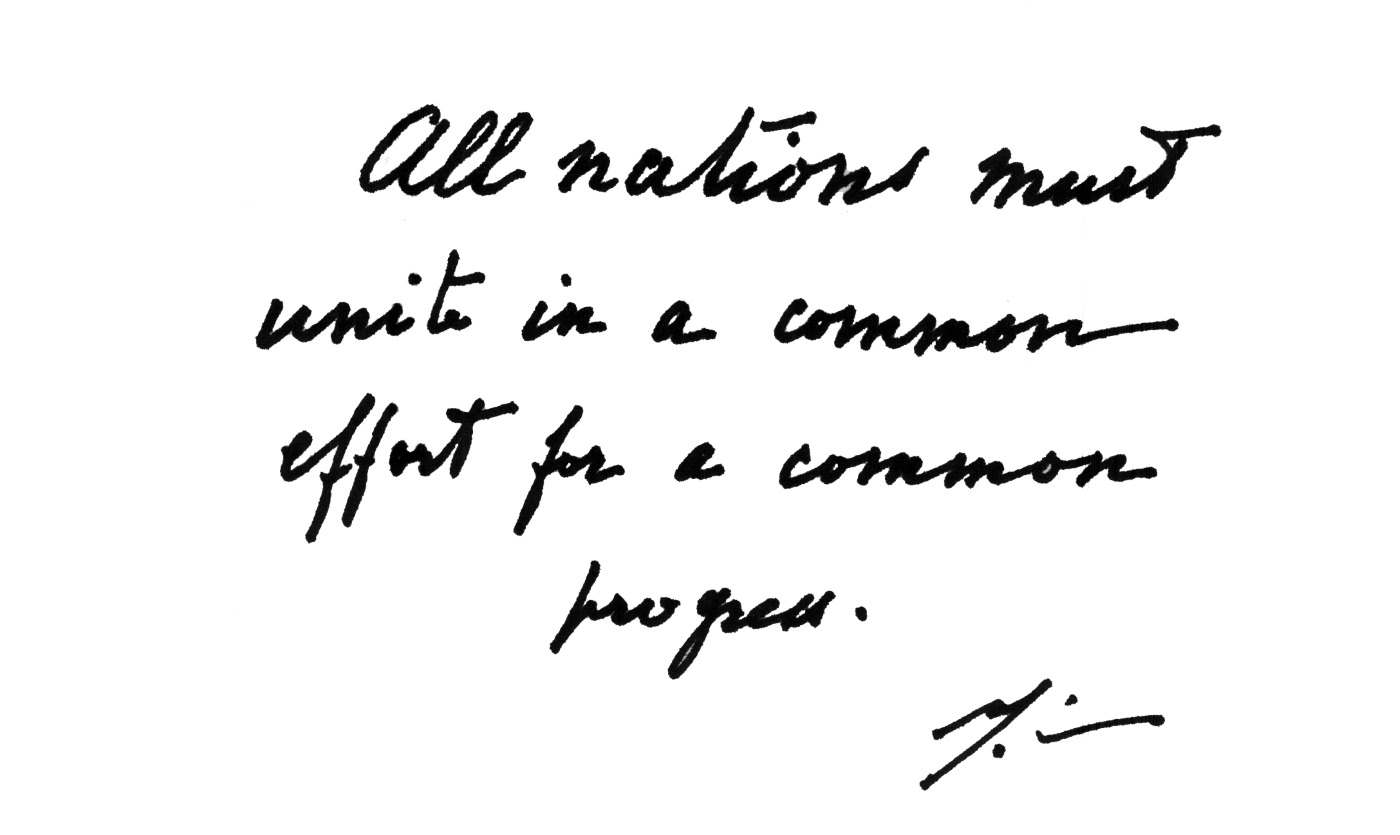 All nations must
unite in a common
effort for a common
progress.